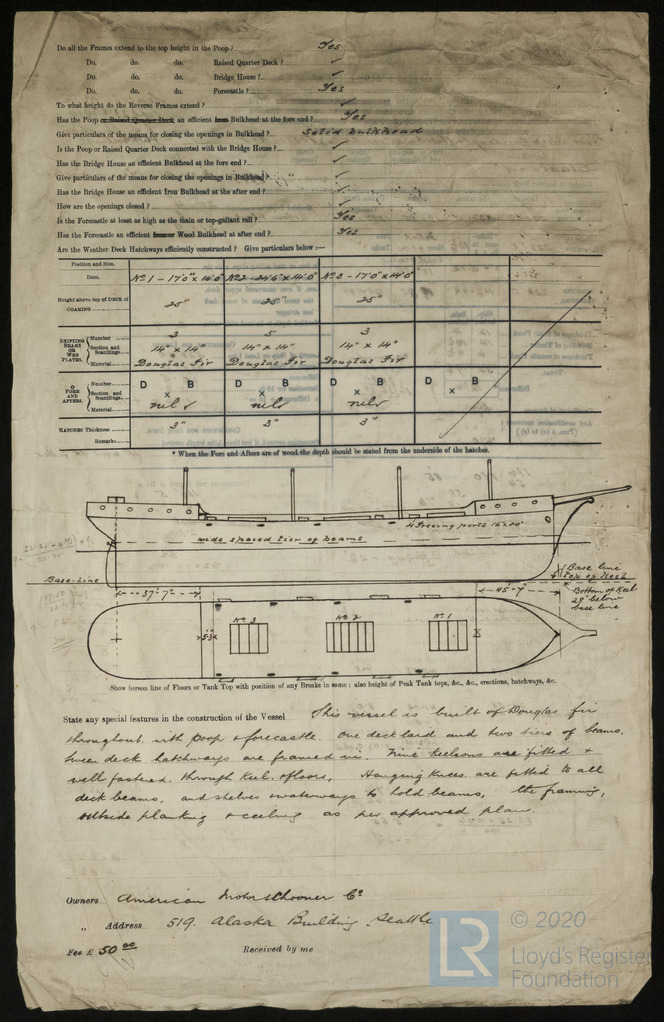 Do all the Frames extend to the top height in the Poop ? Yes
Do. do. do. Raised Quarter Deck ? ✓
Do. do. do. Bridge House ? ✓
Do. do. do. Forecastle ? Yes
To what height do the Reverse Frames extend ? ✓
Has the Poop or Raised Quarter Deck an efficient Iron Bulkhead at the fore end ? Yes
Give particulars of the means for closing the openings in Bulkhead ? Solid bulkhead
Is the Poop or Raised Quarter Deck connected with the Bridge House ? ✓
Has the Bridge House an efficient Bulkhead at the fore end ? ✓
Give particulars of the means for closing the openings in Bulkhead ? ✓
Has the Bridge House an efficient Iron Bulkhead at the after end ? ✓
How are the openings closed ? ✓
Is the Forecastle at least as high as the main or top-gallant rail ? Yes
Has the Forecastle an efficient Iron or Wood Bulkhead at after end ? Yes
Are the Weather Deck Hatchways efficiently constructed ? Give particulars below :—
Position and Size.
Item. No 1 - 17'0" x 14'0" No 2 - 24'6" x 14'0" No 3 - 17'0" x 14'0"
Height above top of DECK of COAMING 25" 25" 25"
SHIFTING BEAMS OR WEB PLATES. Number 3 5 3
Section and Scantlings 14" x 14" 14" x 14" 14" x 14"
Material Douglas Fir Douglas Fir Douglas Fir
FORE AND AFTERS. Number D B D B D B D B
Section and Scantlings x x x x
Material nil nil nil
HATCHES Thickness 3" 3" 3"
Remarks
* When the Fore and Afters are of wood the depth should be stated from the underside of the hatches.
4 Freeing ports
wide spaced tier of beams
Base-line
Base line
top of Keel
Bottom of Keel
28" below
base line
37'-7" 45'-7"
No 3 No 2 No 1
Show hereon line of Floors or Tank Top with position of any Breaks in same ; also height of Peak Tank tops, &c., &c., erections, hatchways, &c.
State any special features in the construction of the Vessel This vessel is built of Douglas fir
throughout with poop & forecastle. One deck laid and two tiers of beams.
Tween deck hatchways are framed in. Nine Keelsons are fitted &
well fastened through Keel & floors, Hanging Knees are fitted to all
deck beams, and shelves & waterways to hold beams, the framing,
outside planking & ceiling as per approved plan.
Owners American Motorschooner Co
„ Address 519. Alaska Building Seattle
Fee £ 50 00 Received by me
LR
© 2020
Lloyd's Register
Foundation